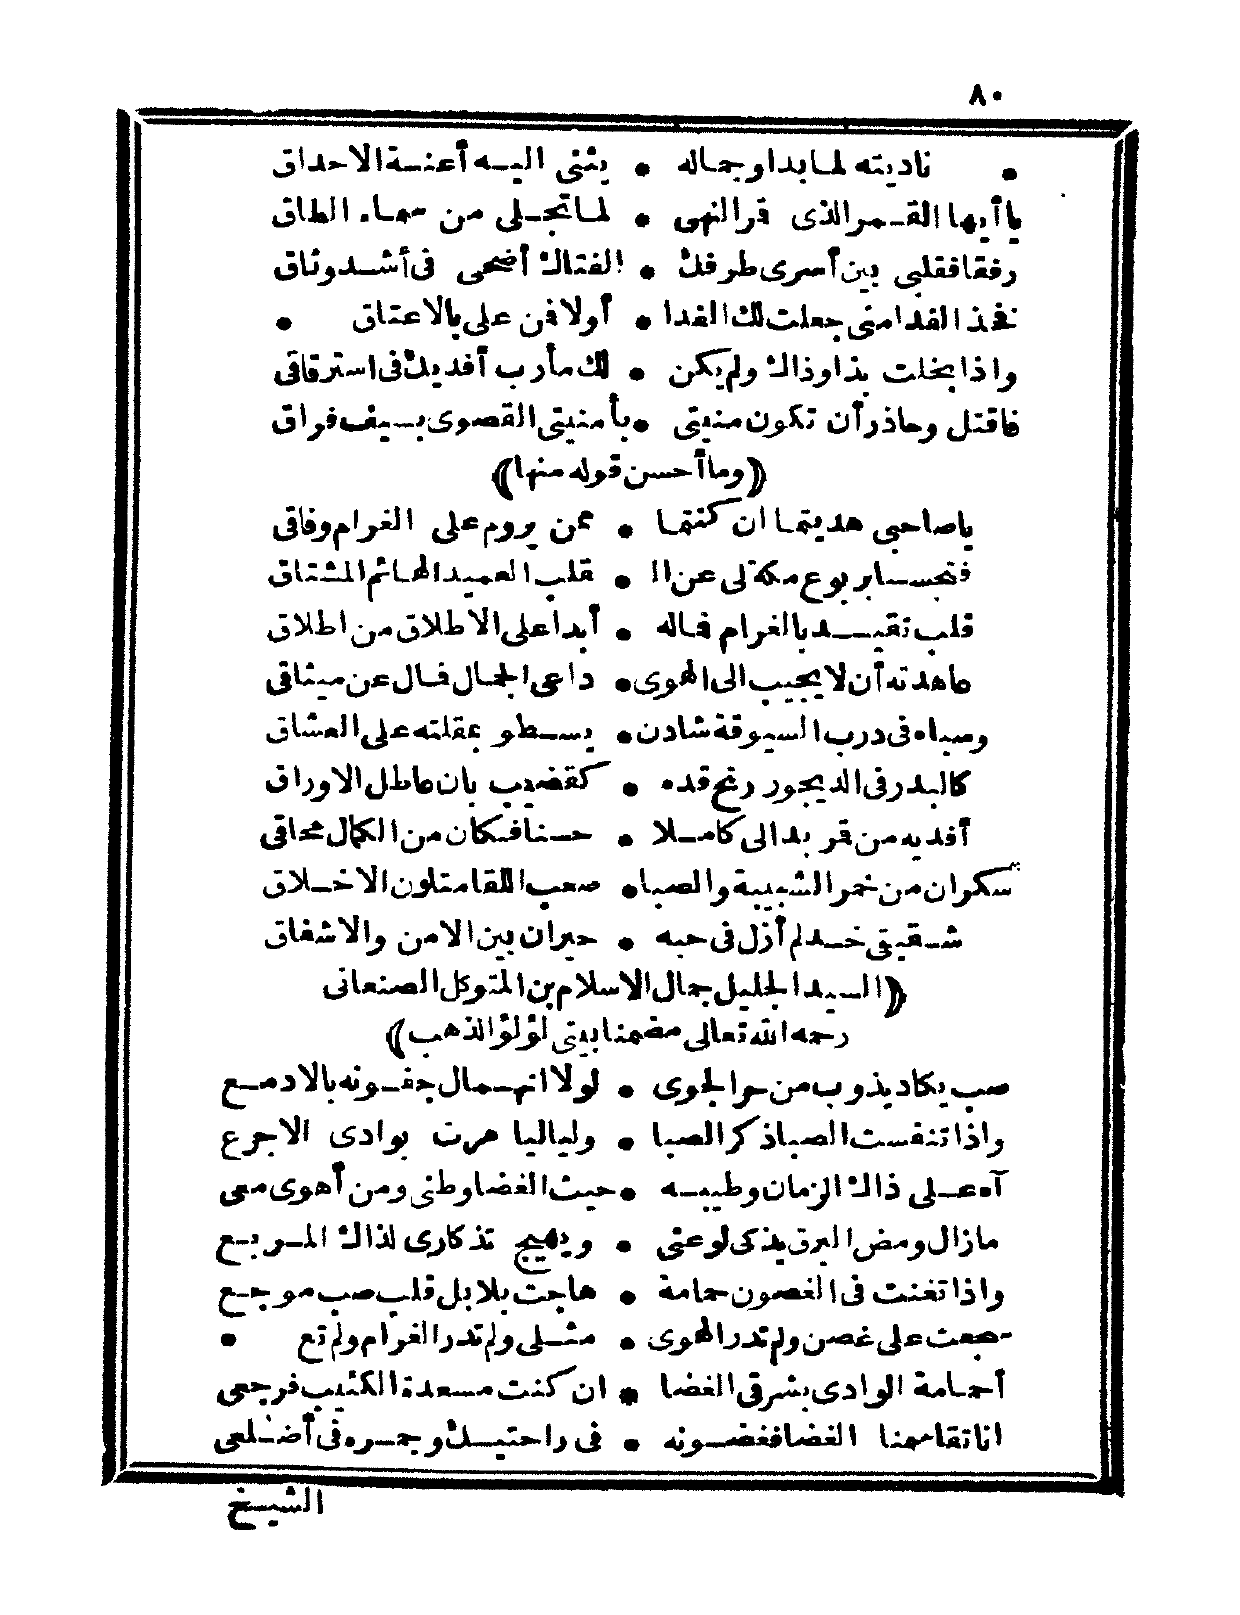 ٨٠
• ناديته لما بدا وجماله • يثنى اليه أعنة الاحداق
يا أيها القمر الذى قمر النهى • لما تجلى من سماء الطاق
رفقا فقلبى بين أسرى طرفك • الفتاك أضحى فى أشد وثاق
فخذ الفدا منى جعلت لك الفدا • أولا فمن على بالاعتاق •
واذا بخلت بذا وذاك ولم يكن • لك مأرب أفديك فى استرقاقى
فاقتل وحاذر أن تكون منيتى • يا منيتى القصوى بسيف فراق
﴿وما أحسن قوله منها﴾
يا صاحبى هديتما ان كنتما • ممن يروم على الغرام وفاقى
فتجسسا بربوع مكة لى عن ال • قلب العميد الهائم المشتاق
قلب تقيد بالغرام فماله • أبدا على الاطلاق من اطلاق
عاهدته أن لا يجيب الى الهوى • داعى الجمال فمال عن ميثاقى
وصباه فى درب السيوقة شادن • يسطو بمقلته على العشاق
كالبدر فى الديجور رنح قده • كقضيب بان عاطل الاوراق
أفديه من قمر بدا لى كاملا • حسنا فكان من الكمال محاقى
سكران من خمر الشبيبة والصبا • صعب اللقا متلون الاخلاق
شقيق خد لم أزل فى حبه • حيران بين الامن والاشفاق
﴿السيد الجليل جمال الاسلام بن المتوكل الصنعانى
رحمه الله تعالى مضمنا بيتى لؤلؤ الذهب﴾
صب يكاد يذوب من حر الجوى • لولا انهمال جفونه بالادمع
واذا تنفست الصبا ذكر الصبا • ولياليا مرت بوادى الاجرع
آه على ذاك الزمان وطيبه • حيث الغضا وطنى ومن أهوى معى
مازال ومض البرق يذكى لوعتى • ويهيج تذكارى لذاك المربع
واذا تغنت فى الغصون حمامة • هاجت بلابل قلب صب موجع
سجعت على غصن ولم تدر الهوى • مثلى ولم تدر الغرام ولم تع •
أحمامة الوادى بشرقى الغضا • ان كنت مسعدة الكئيب فرجعى
انا تقاسمنا الغضا فغصونه • فى راحتيك وجمره فى أضلعى
الشيخ